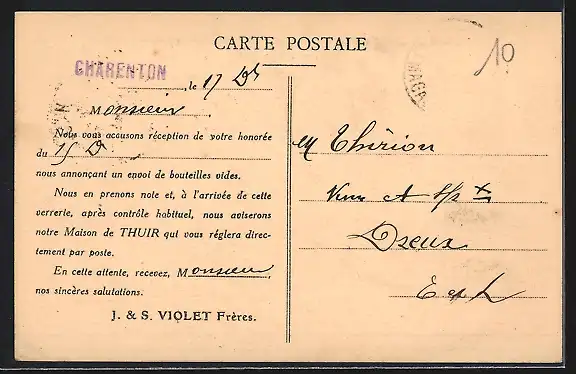 CARTE POSTALE
10
CHARENTON
, le 17 Dr
Monsieur,
Nous vous accusons réception de votre honorée
du 15 D
nous annonçant un envoi de bouteilles vides.
Nous en prenons note et, à l'arrivée de cette
verrerie, après contrôle habituel, nous aviserons
notre Maison de THUIR qui vous réglera direc-
tement par poste.
En cette attente, recevez, Monsieur,
nos sincères salutations.
J. & S. VIOLET Frères.
M Thirion
Dreux
E et L